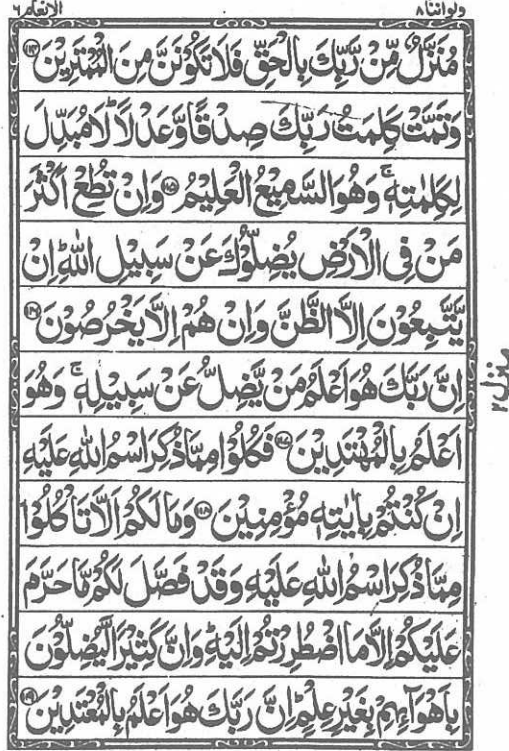 ولواننا ٨ الانعام ٦
مُنَزَّلٌ مِّنْ رَّبِّكَ بِالْحَقِّ فَلَا تَكُوْنَنَّ مِنَ الْمُمْتَرِيْنَ ۝۱۱۴
وَتَمَّتْ كَلِمَتُ رَبِّكَ صِدْقًا وَّعَدْلًا ؕ لَا مُبَدِّلَ
لِكَلِمٰتِهٖ ۚ وَهُوَ السَّمِيْعُ الْعَلِيْمُ ۝۱۱۵ وَاِنْ تُطِعْ اَكْثَرَ
مَنْ فِى الْاَرْضِ يُضِلُّوْكَ عَنْ سَبِيْلِ اللّٰهِ ؕ اِنْ
يَّتَّبِعُوْنَ اِلَّا الظَّنَّ وَاِنْ هُمْ اِلَّا يَخْرُصُوْنَ ۝۱۱۶
اِنَّ رَبَّكَ هُوَ اَعْلَمُ مَنْ يَّضِلُّ عَنْ سَبِيْلِهٖ ۚ وَهُوَ
اَعْلَمُ بِالْمُهْتَدِيْنَ ۝۱۱۷ فَكُلُوْا مِمَّا ذُكِرَ اسْمُ اللّٰهِ عَلَيْهِ
اِنْ كُنْتُمْ بِاٰيٰتِهٖ مُؤْمِنِيْنَ ۝۱۱۸ وَمَا لَكُمْ اَلَّا تَاْكُلُوْا
مِمَّا ذُكِرَ اسْمُ اللّٰهِ عَلَيْهِ وَقَدْ فَصَّلَ لَكُمْ مَّا حَرَّمَ
عَلَيْكُمْ اِلَّا مَا اضْطُرِرْتُمْ اِلَيْهِ ؕ وَاِنَّ كَثِيْرًا لَّيُضِلُّوْنَ
بِاَهْوَآئِهِمْ بِغَيْرِ عِلْمٍ ؕ اِنَّ رَبَّكَ هُوَ اَعْلَمُ بِالْمُعْتَدِيْنَ ۝۱۱۹
منزل ۲